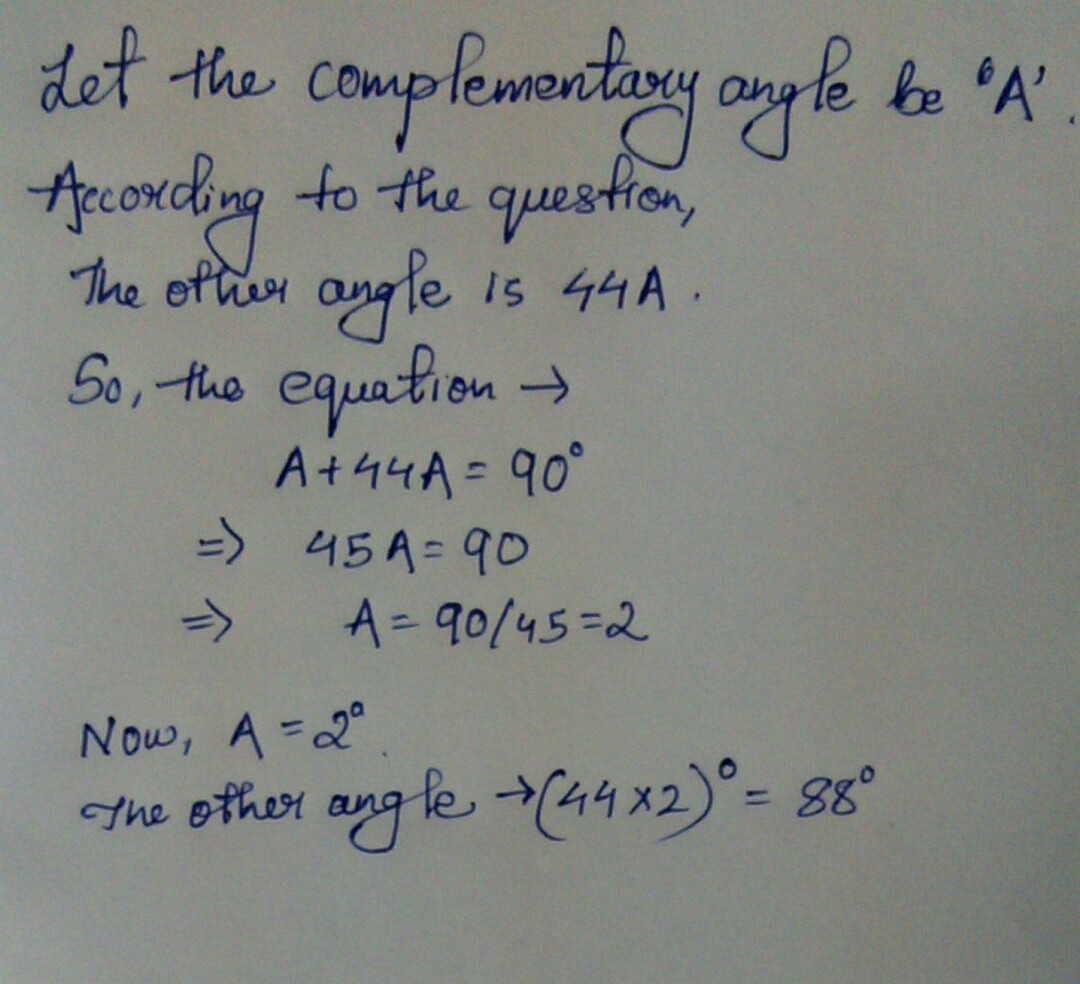 Let the complementary angle be 'A'.
According to the question,
The other angle is 44A.
So, the equation →
A+44A = 90°
⇒ 45A = 90
⇒ A = 90/45 = 2
Now, A = 2°.
The other angle → (44×2)° = 88°